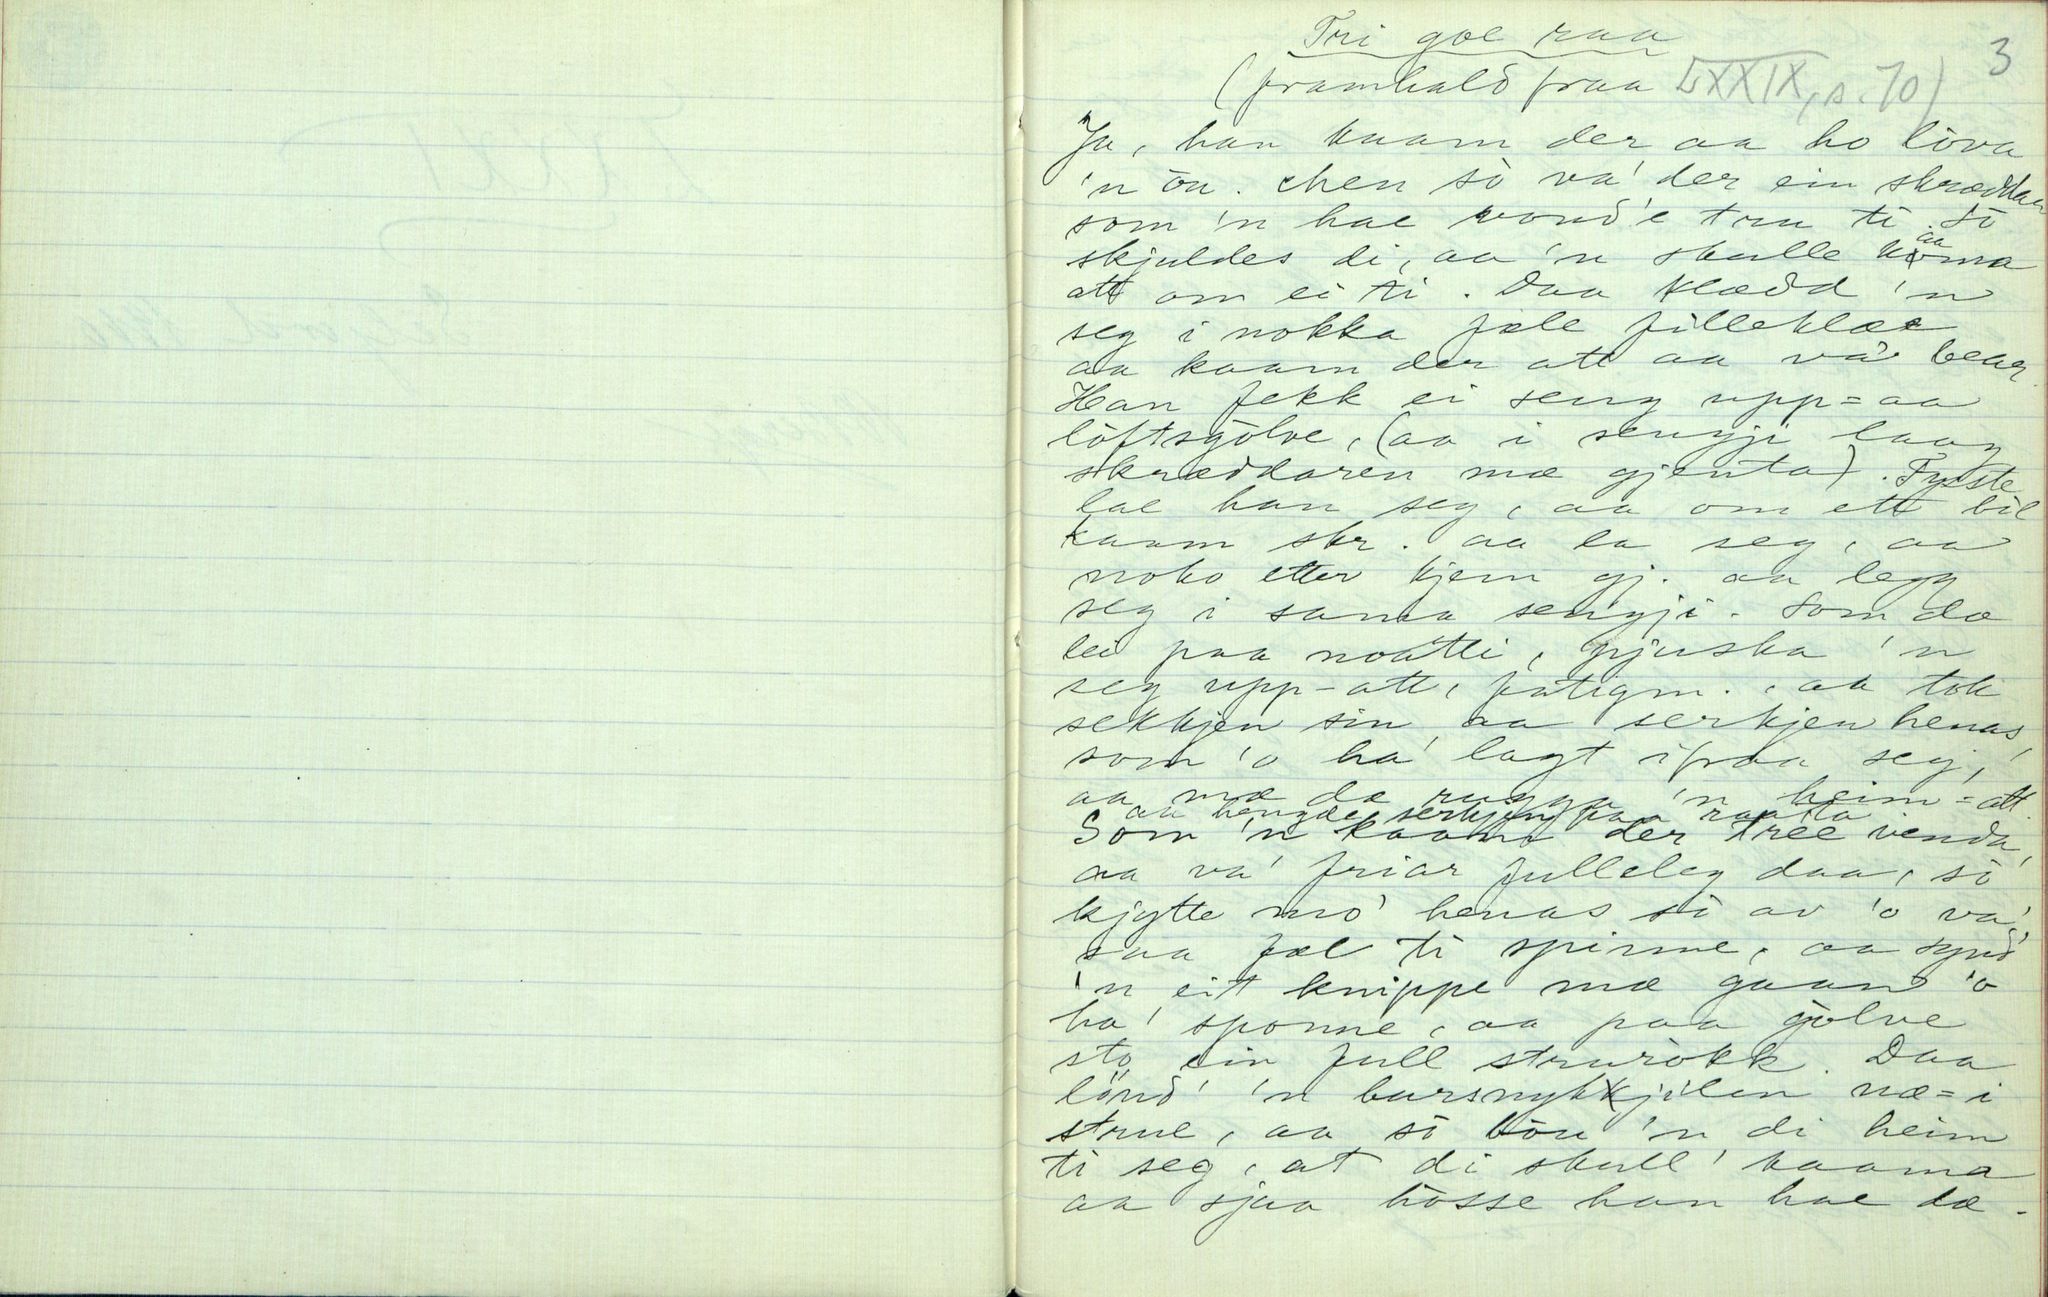 3
Tri goe raa
(framhald fraa LXXIX, s. 70)
Ja, han kaam der aa ho lova
'n öu. Men sò va' der ein skræddar
som 'n hae vond'e tru ti. Sò
skjuldes di, aa 'n skulle kaama
att om ei ti. Daa klædd 'n
seg i nokka fæle filleklæe
aa kaam der att aa va' bear.
Han fekk ei seng upp=aa
lòftsgòlve, (aa i sengji laag
skræddaren mæ gjenta). Fysste
lae han seg, aa om ett bil
kaam skr. aa la seg, aa
noko etter kjem gj. aa legg
seg i sama sengji. Som dæ
lei paa notti, pjuska 'n
seg upp-att, fatigm., aa tok
sekkjen sin aa serkjen henas,
som 'o ha' lagt ifraa seg,
aa mæ dæ rugga 'n heim=att
aa hengde serkjen paa raata
Som 'n kaam der tree venda,
aa va' friar fulleleg daa, sò
kjytte mo' henas sò av 'o va'
saa fæl ti spinne, aa synd'
'n eit knippe mæ gaan 'o
ha' sponne, aa paa gòlve
sto ein full strurokk. Daa
lönd' 'n bursnykkjilen næ=i
strue, aa sò böu 'n di heim
ti seg, at di skull' kaama
aa sjaa hòsse han hae dæ.